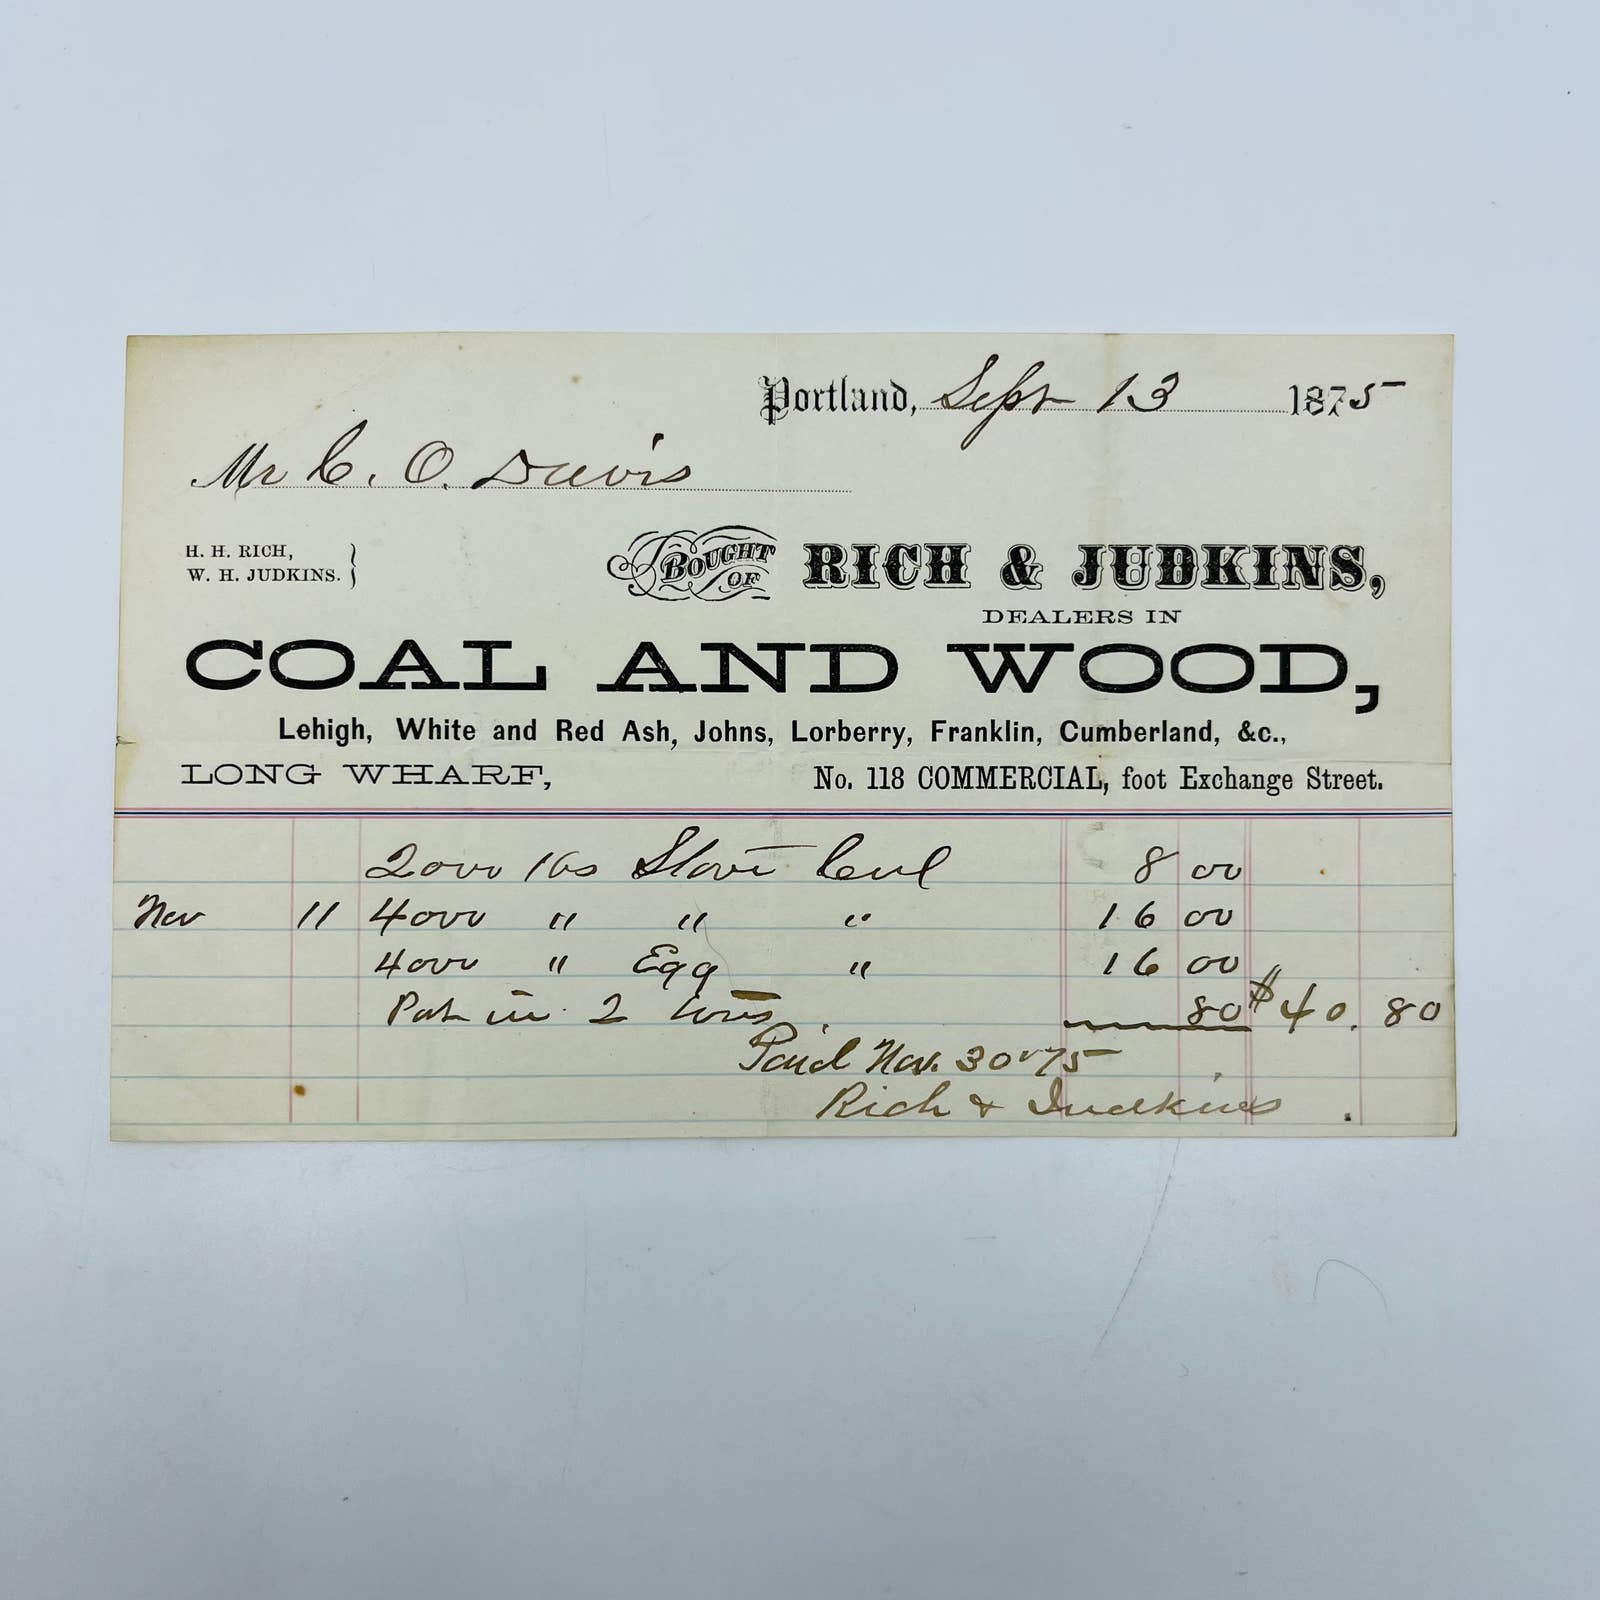 Portland, Sept 13 1875
Mr C. O. Davis
H. H. RICH,
W. H. JUDKINS. }
BOUGHT OF RICH & JUDKINS,
DEALERS IN
COAL AND WOOD,
Lehigh, White and Red Ash, Johns, Lorberry, Franklin, Cumberland, &c.,
LONG WHARF, No. 118 COMMERCIAL, foot Exchange Street.
2000 lbs Stove Coal 8 00
Nov 11 4000 " " " 16 00
4000 " Egg " 16 00
Put in 2 tons 80 $40.80
Paid Nov. 30 75
Rich & Judkins